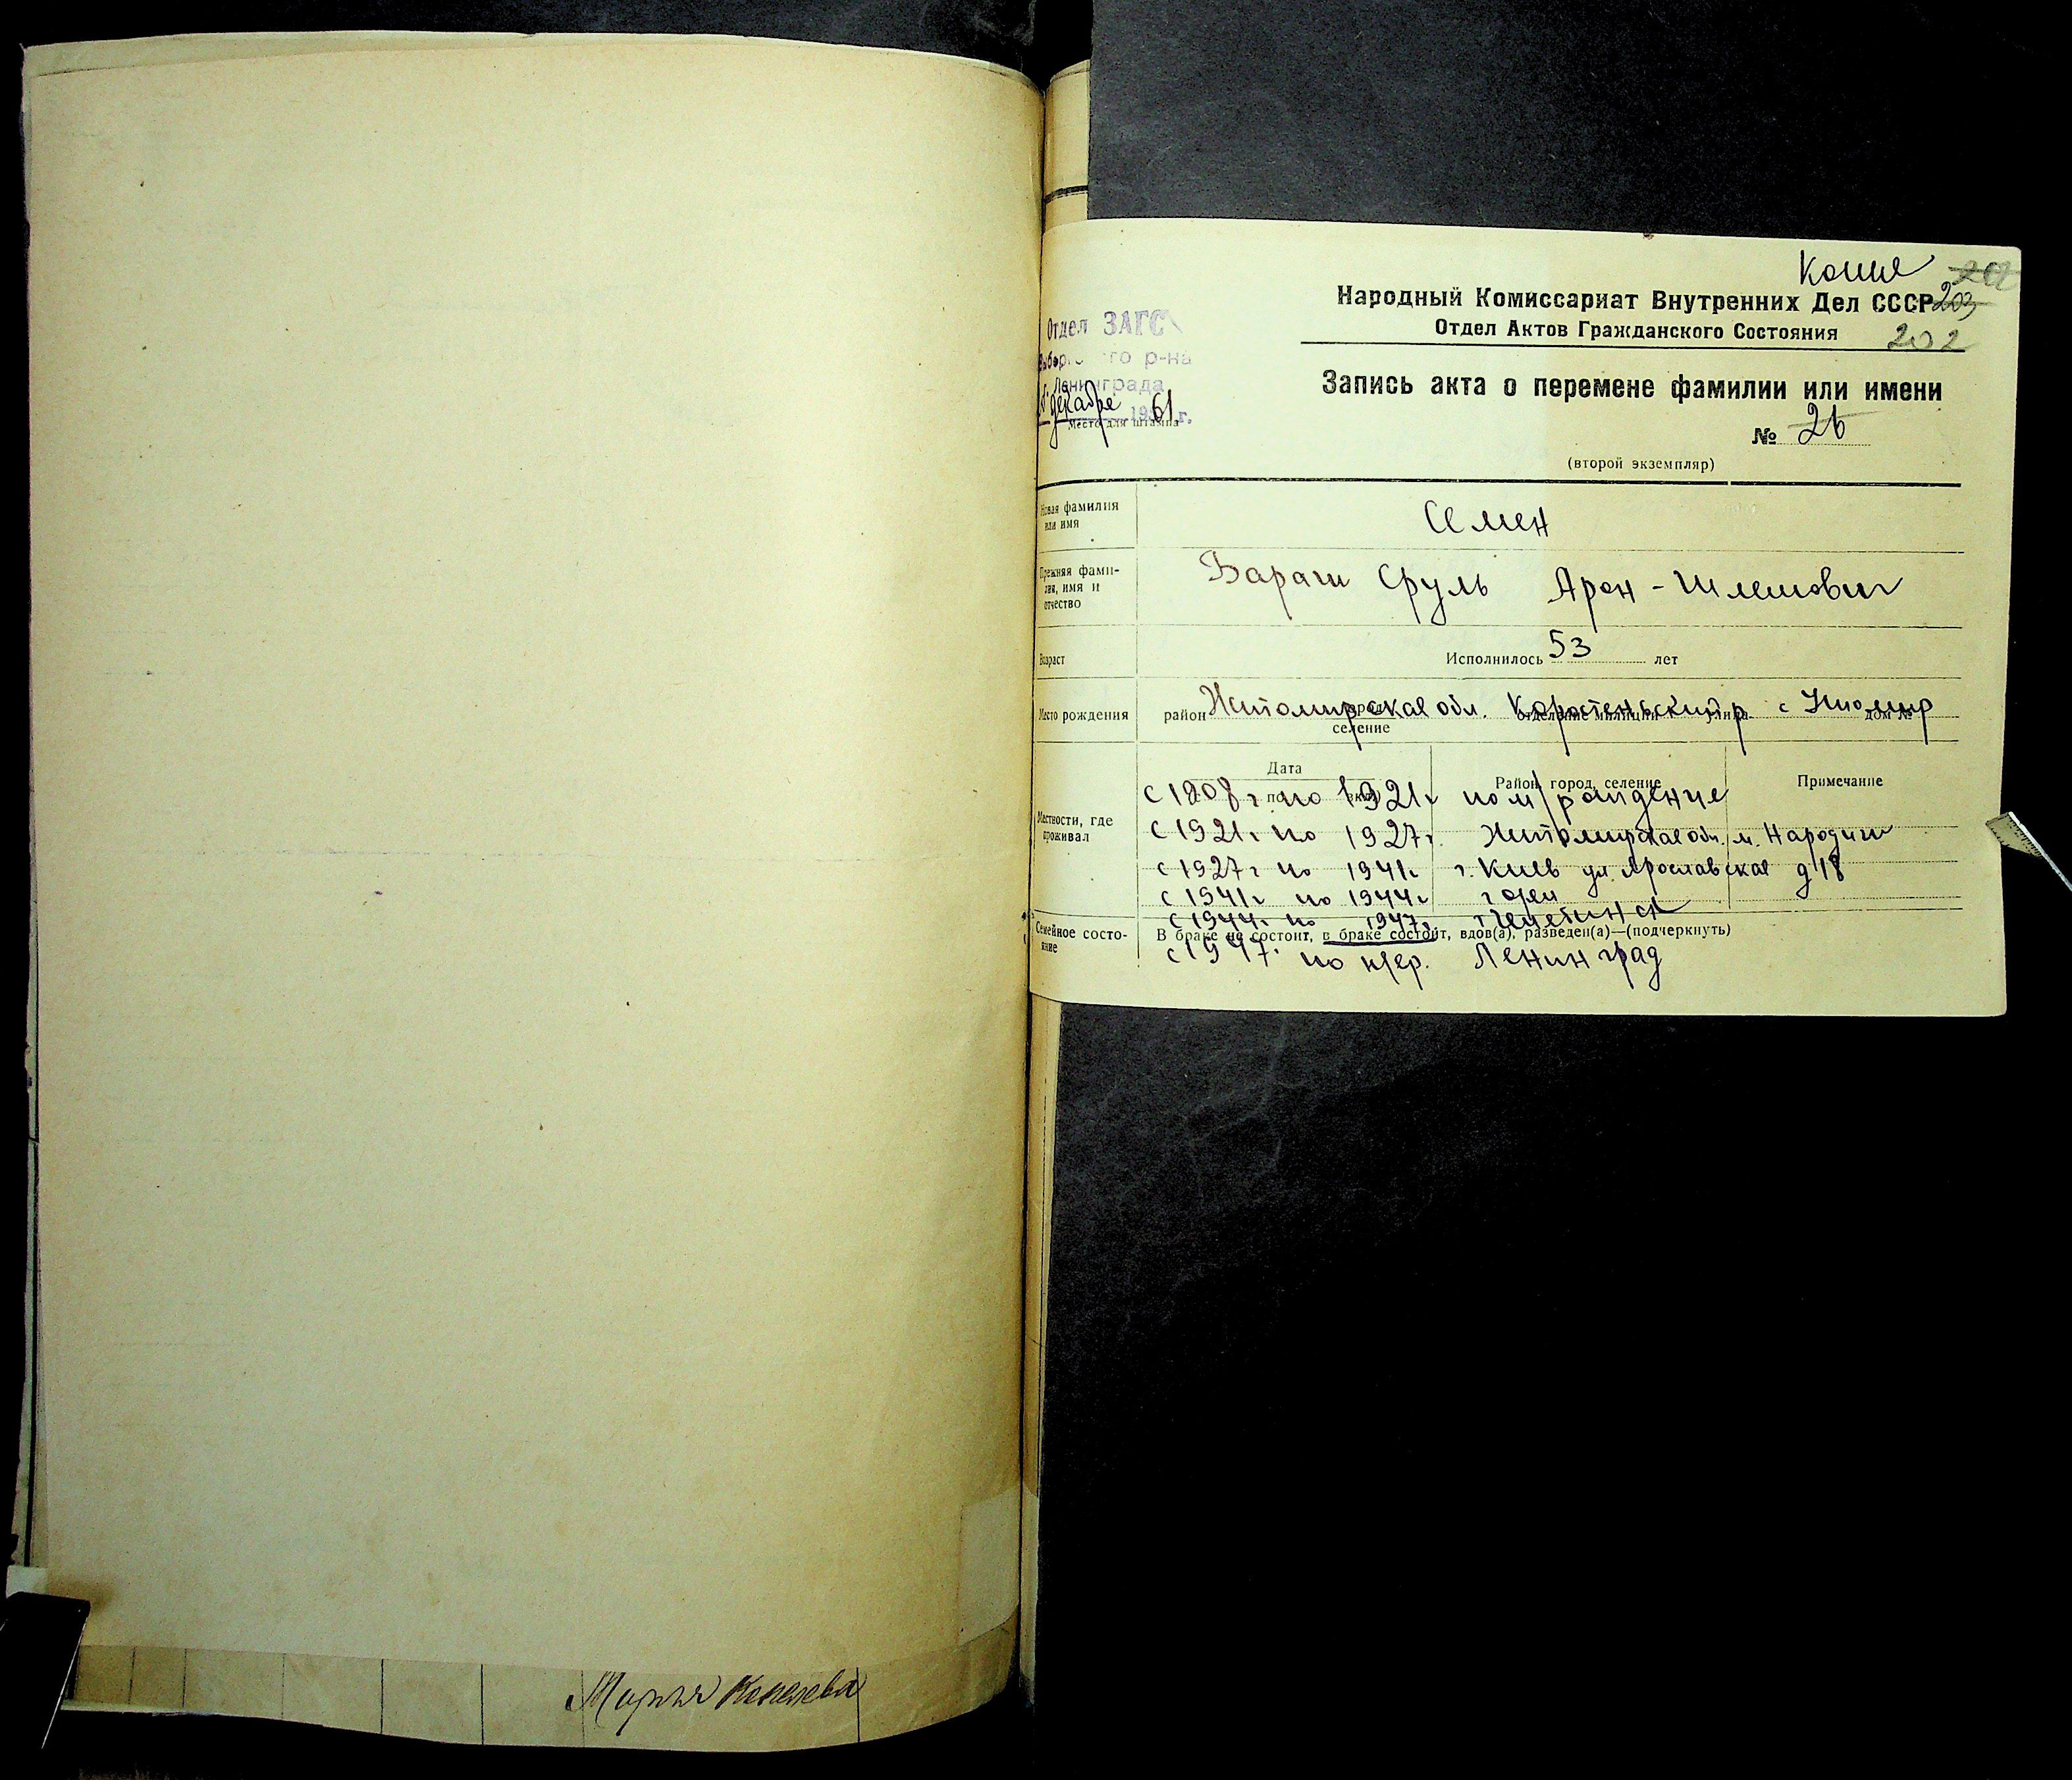 Копия
Народный Комиссариат Внутренних Дел СССР 203
Отдел Актов Гражданского Состояния 202
Отдел ЗАГС
го р-на
Ленинграда
декабре 1961 г.
Место для штампа
Запись акта о перемене фамилии или имени
№ 26
(второй экземпляр)
Новая фамилия или имя
Семен
Прежняя фамилия, имя и отчество
Бараш Сруль Арон-Шлемович
Возраст
Исполнилось 53 лет
Место рождения
район Житомирская обл. Коростеньский р с
селение
Дата
Район, город, селение
Примечание
Местности, где проживал
с 1908 г по 1921 г по м/рождения
с 1921 г. по 1927 г. Житомирская обл. м. Народичи
с 1927 г по 1941 г. г. Киев ул. Ярославская д 18
с 1941 г по 1944 г
с 1944 г. по 1947 г. г Челябинск
Семейное состояние
В браке не состоит, в браке состоит, вдов(а), разведен(а)—(подчеркнуть)
с 1947 г. по н/вр. Ленинград
Мария